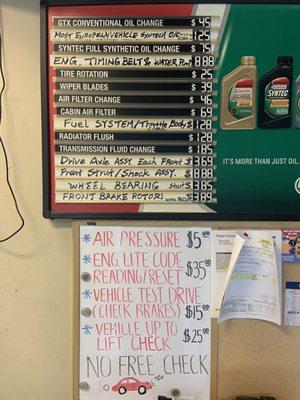 GTX CONVENTIONAL OIL CHANGE $ 45
MOST EUROPEAN VEHICLE SYNTECH O/C $ 125
SYNTEC FULL SYNTHETIC OIL CHANGE $ 75
ENG. TIMING BELT & WATER PUMP $ 888
TIRE ROTATION $ 25
WIPER BLADES $ 39
AIR FILTER CHANGE $ 45
CABIN AIR FILTER $ 69
FUEL SYSTEM/Throttle Body $ 128
RADIATOR FLUSH $ 128
TRANSMISSION FLUID CHANGE $ 185
Drive Axle ASSY. Each Front $ 369
Front Strut/Shock ASSY. $ 888
WHEEL BEARING Start $ 385
FRONT BRAKE ROTORS with PADS $ 385
SYNTEC
IT'S MORE THAN JUST OIL.
* AIR PRESSURE $5.00
* ENG LITE CODE
READING/RESET $35.00
* VEHICLE TEST DRIVE
(CHECK BRAKES) $15.00
* VEHICLE UP TO
LIFT CHECK $25.00
NO FREE CHECK